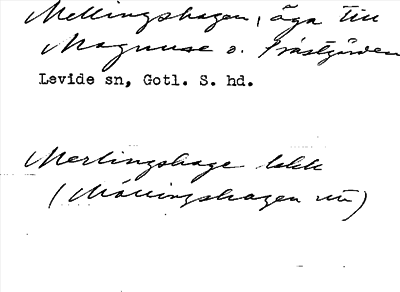 Mellingshagen, äga till
Magnuse o. Prästgården
Levide sn, Gotl. S. hd.
Merlingshage lekk
(Mällingshagen nu)